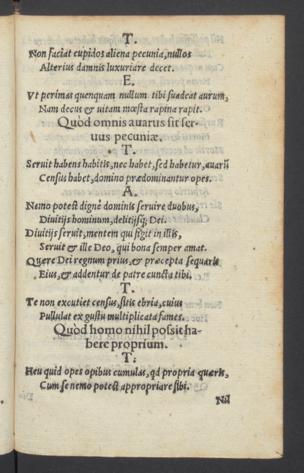 T.
Non faciat cupidos aliena pecunia, nullos
Alterius damnis luxuriare decet.
E.
Vt perimas quenquam nullum tibi suadeat aurum,
Nam decus & uitam mœsta rapina rapit.
Quòd omnis auarus sit ser-
uus pecuniæ.
T.
Seruit habens habitis, nec habet, sed habetur, auarū
Census habet, domino prædominantur opes.
A.
Nemo potest dignè dominis seruire duobus,
Diuitijs hominum, delitijsq; Dei.
Diuitijs seruit, mentem qui figit in illis,
Seruit & ille Deo, qui bona semper amat.
Quere Dei regnum prius, & præcepta sequaris
Eius, & addentur de patre cuncta tibi.
T.
Te non excutiet census, sitis ebria, cuius
Pullulat ex gustu multiplicata fames.
Quòd homo nihil possit ha-
bere proprium.
T.
Heu quid opes opibus cumulas, qd propria quæris,
Cum se nemo potest appropriare sibi.
Nil